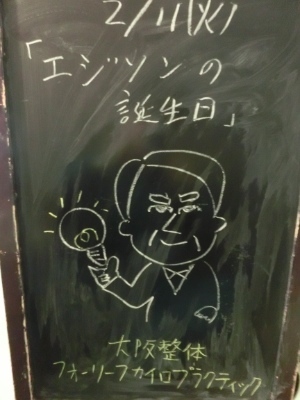 2/11(火)
「エジソンの
誕生日」
大阪整体
フォーリーフカイロプラクティック